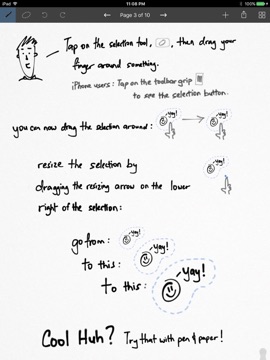 iPad
11:08 PM
100%
Page 3 of 10
Tap on the selection tool, , then drag your
finger around something.
iPhone users: Tap on the toolbar grip
to see the selection button.
you can now drag the selection around:
yay!
yay!
resize the selection by
yay!
dragging the resizing arrow on the lower
right of the selection:
go from:
yay!
to this:
yay!
to this:
yay!
Cool Huh? Try that with pen & paper!